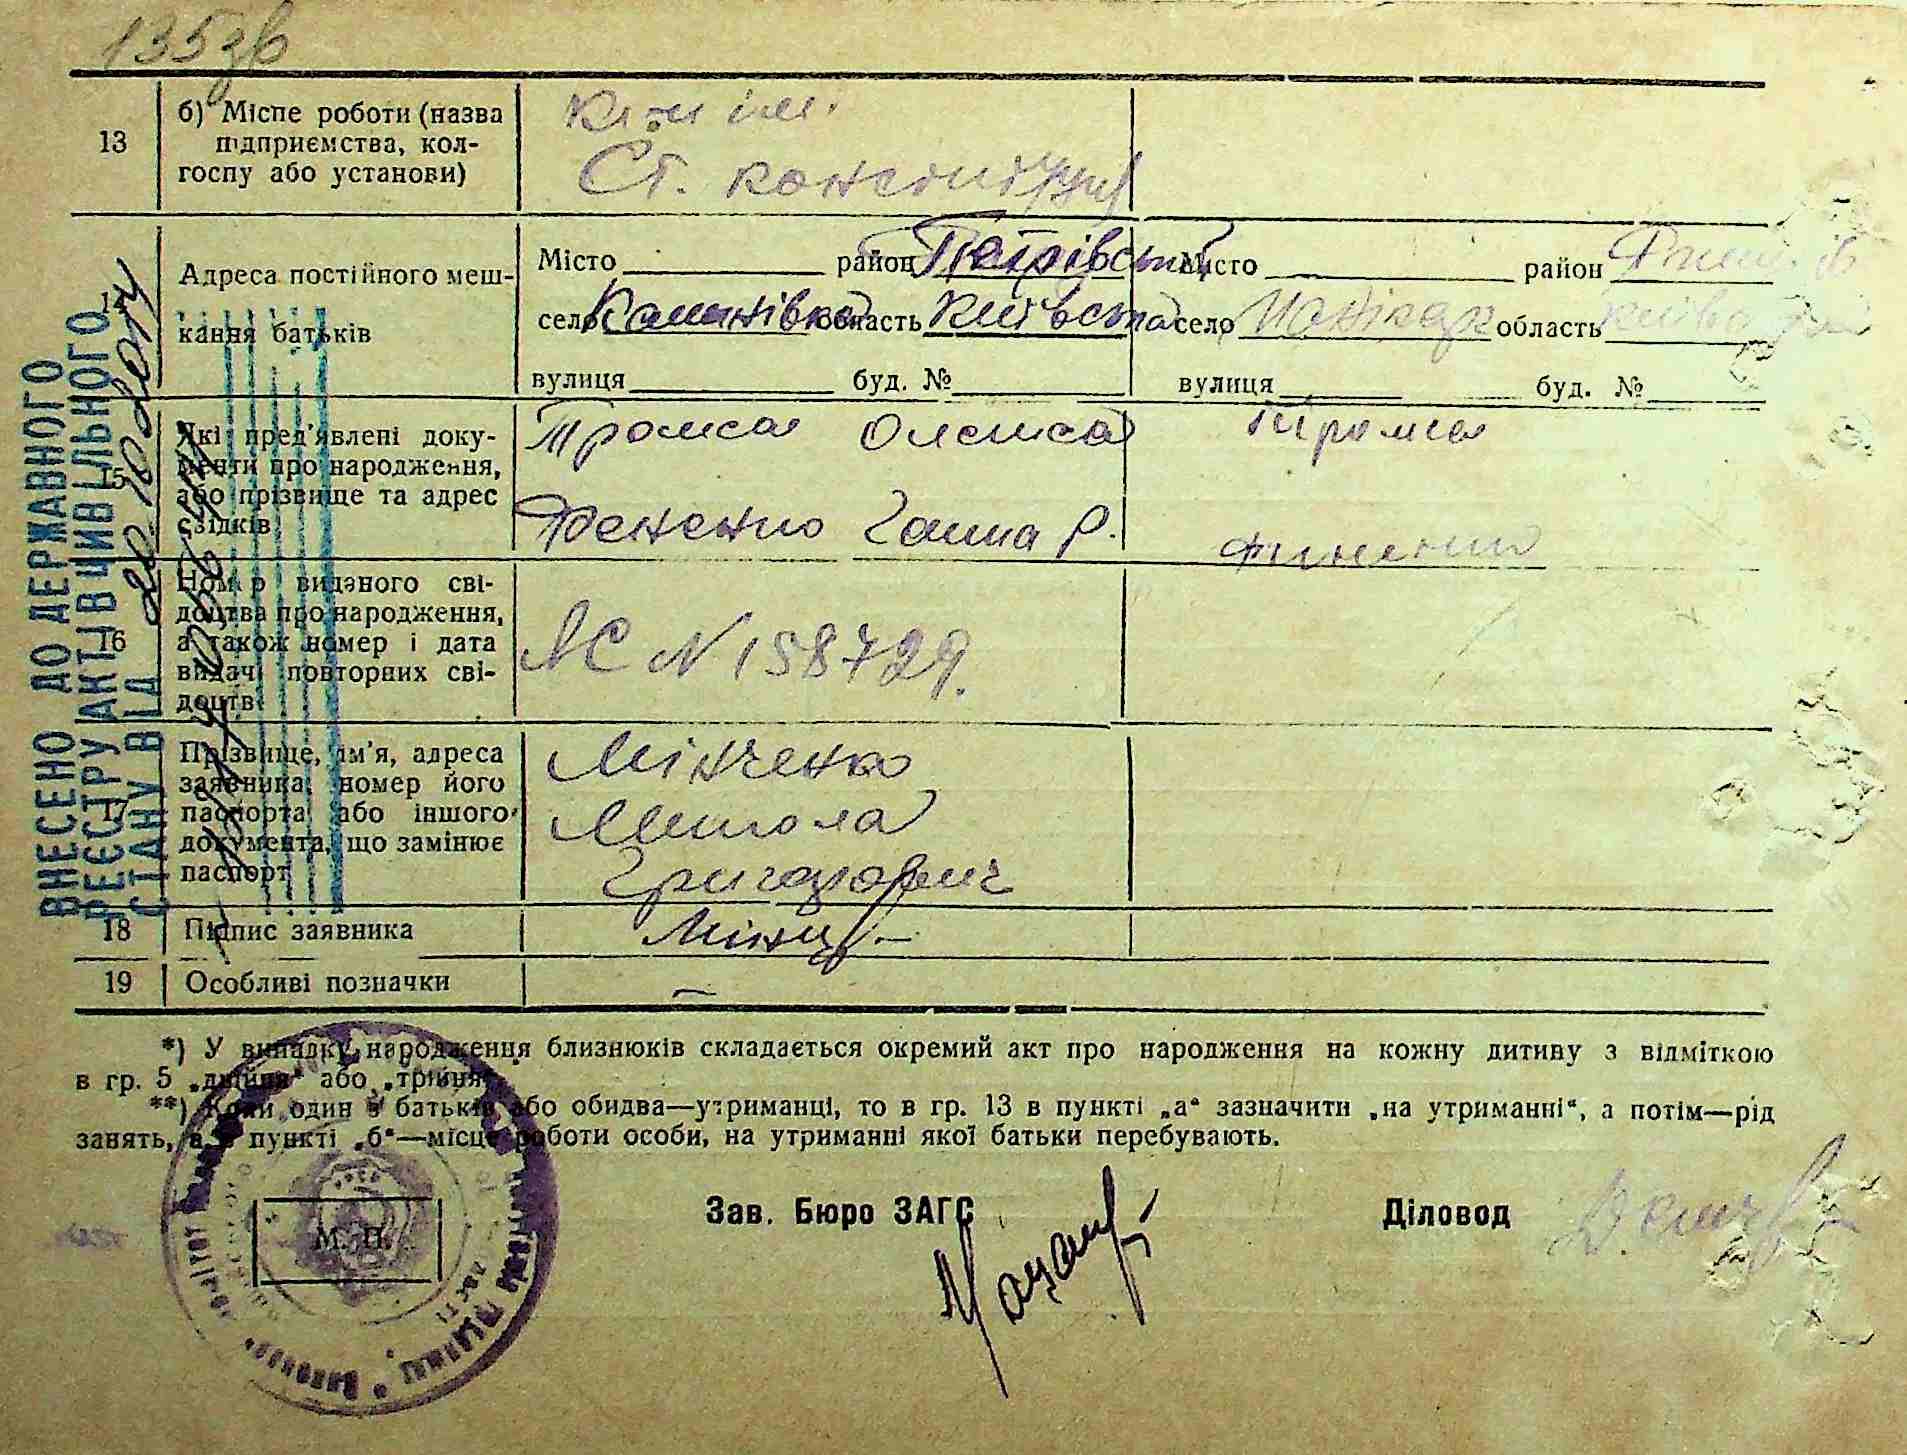 135зв
13
б) Місце роботи (назва
підприємства, кол-
госпу або установи)
К-п ім.
Ст. конституції
14
Адреса постійного меш-
кання батьків
Місто район Петрівський
село Калинівка область Київська
вулиця буд. №
Місто район
село область
вулиця буд. №
15
Які пред'явлені доку-
менти про народження,
або прізвище та адрес
свідків
Громса
Ганна Р.
Громса
16
Номер виданого сві-
доцтва про народження,
а також номер і дата
видачі повторних сві-
доцтв
АС N 158729.
17
Прізвище, ім'я, адреса
заявника, номер його
паспорта або іншого
документа, що замінює
паспорт
Мінченко
Микола
Григорович
18
Підпис заявника
19
Особливі позначки
—
*) У випадку народження близнюків складається окремий акт про народження на кожну дитину з відміткою
в гр. 5 „двійня“ або „трійня“.
**) Коли один з батьків або обидва—утриманці, то в гр. 13 в пункті „а“ зазначити „на утриманні“, а потім—рід
занять, а в пункті „б“—місце роботи особи, на утриманні якої батьки перебувають.
М. П.
Зав. Бюро ЗАГС
Діловод
ВНЕСЕНО ДО ДЕРЖАВНОГО
РЕЄСТРУ АКТІВ ЦИВІЛЬНОГО
СТАНУ ВІД